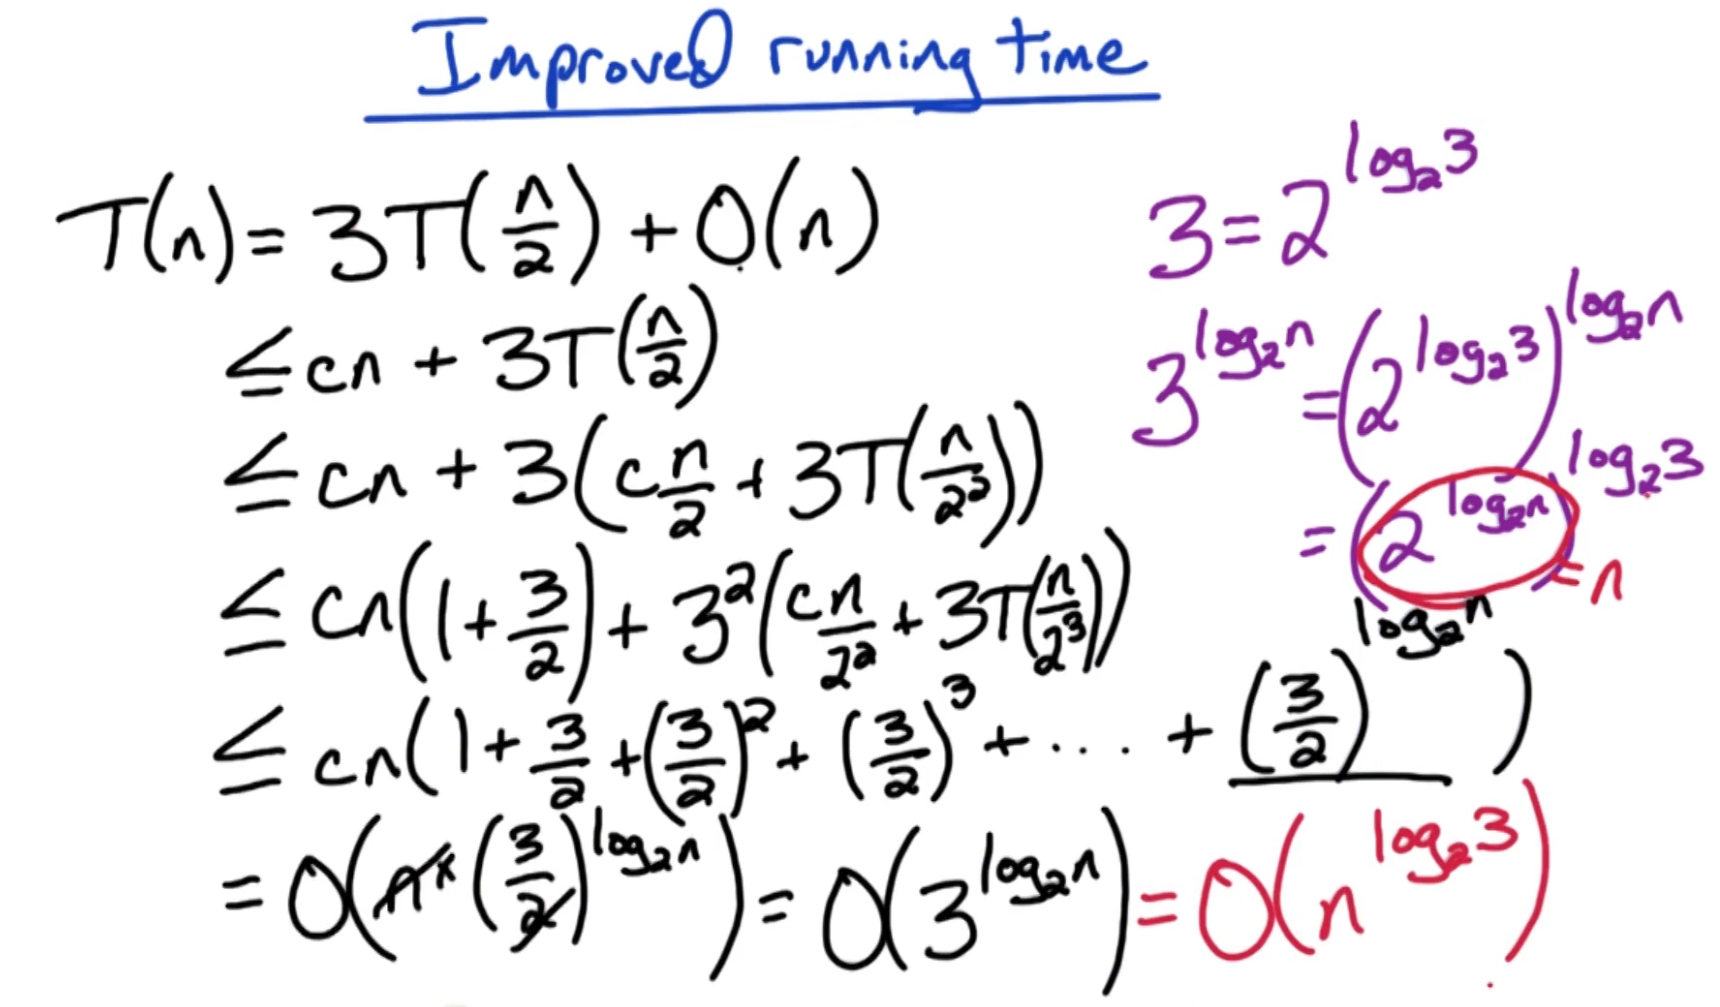 Improved running time
T(n) = 3T(n/2) + O(n)
≤ cn + 3T(n/2)
≤ cn + 3(c n/2 + 3T(n/2²))
≤ cn(1 + 3/2) + 3²(c n/2² + 3T(n/2³))
≤ cn(1 + 3/2 + (3/2)² + (3/2)³ + .... + (3/2)^(log₂n))
= O(n × (3/2)^(log₂n)) = O(3^(log₂n)) = O(n^(log₂3))
3 = 2^(log₂3)
3^(log₂n) = (2^(log₂3))^(log₂n)
= (2^(log₂n))^(log₂3)
= n